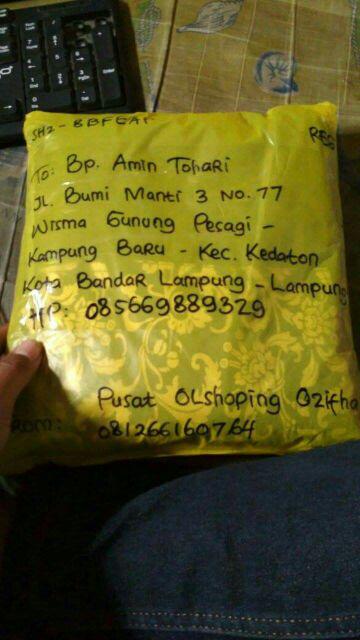 REG
To: Bp. Amin Tohari
JL. Bumi Manti 3 No. 77
Wisma Gunung Pesagi -
Kampung Baru - Kec. Kedaton
Kota Bandar Lampung - Lampung
HP: 085669889329
Pusat OLshoping Ozifha
From: 081266160764